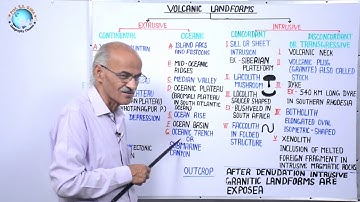 VOLCANIC LANDFORMS
EXTRUSIVE
INTRUSIVE
CONTINENTAL
OCEANIC
A ISLAND ARCS
AND FESTOONS
B MID-OCEANIC
RIDGES
C MEDIAN VALLEY
D OCEANIC PLATEAU
(BROMALI PLATEAU IN
SOUTH ATLANTIC
OCEAN)
E OCEAN RISE
OCEAN BASIN
G OCEANIC TRENCH OR
SUBMARINE
CANYON
PLATEAU
DEPRESSION
CONCORDANT
I SILL OR SHEET
INTRUSION
EX-SIBERIAN
PLATEFORM
II LACOLITH
MUSHROOM
III LOPOLITH
SAUCER SHAPED
EX-BUSHVELD IN
SOUTH AFRICA
IV PHACOLITH
IN FOLDED
STRUCTURE
DISCONCORDANT
OR TRANSGRESSIVE
I VOLCANIC NECK
II VOLCANIC PLUG
(GRANITE) ALSO CALLED
STOCK
III DYKE
EX- 540 KM LONG DYKE
IN SOUTHERN RHODESIA
BETHOLITH
ELONGATED OVAL
ISOMETRIC-SHAPED
V XENOLITH
INCLUSION OF MELTED
FOREIGN FRAGMENT IN
INTRUSIVE MAGMATIC ROCKS
OUTCROP
AFTER DENUDATION INTRUSIVE
GRANITIC LANDFORMS ARE
EXPOSEA